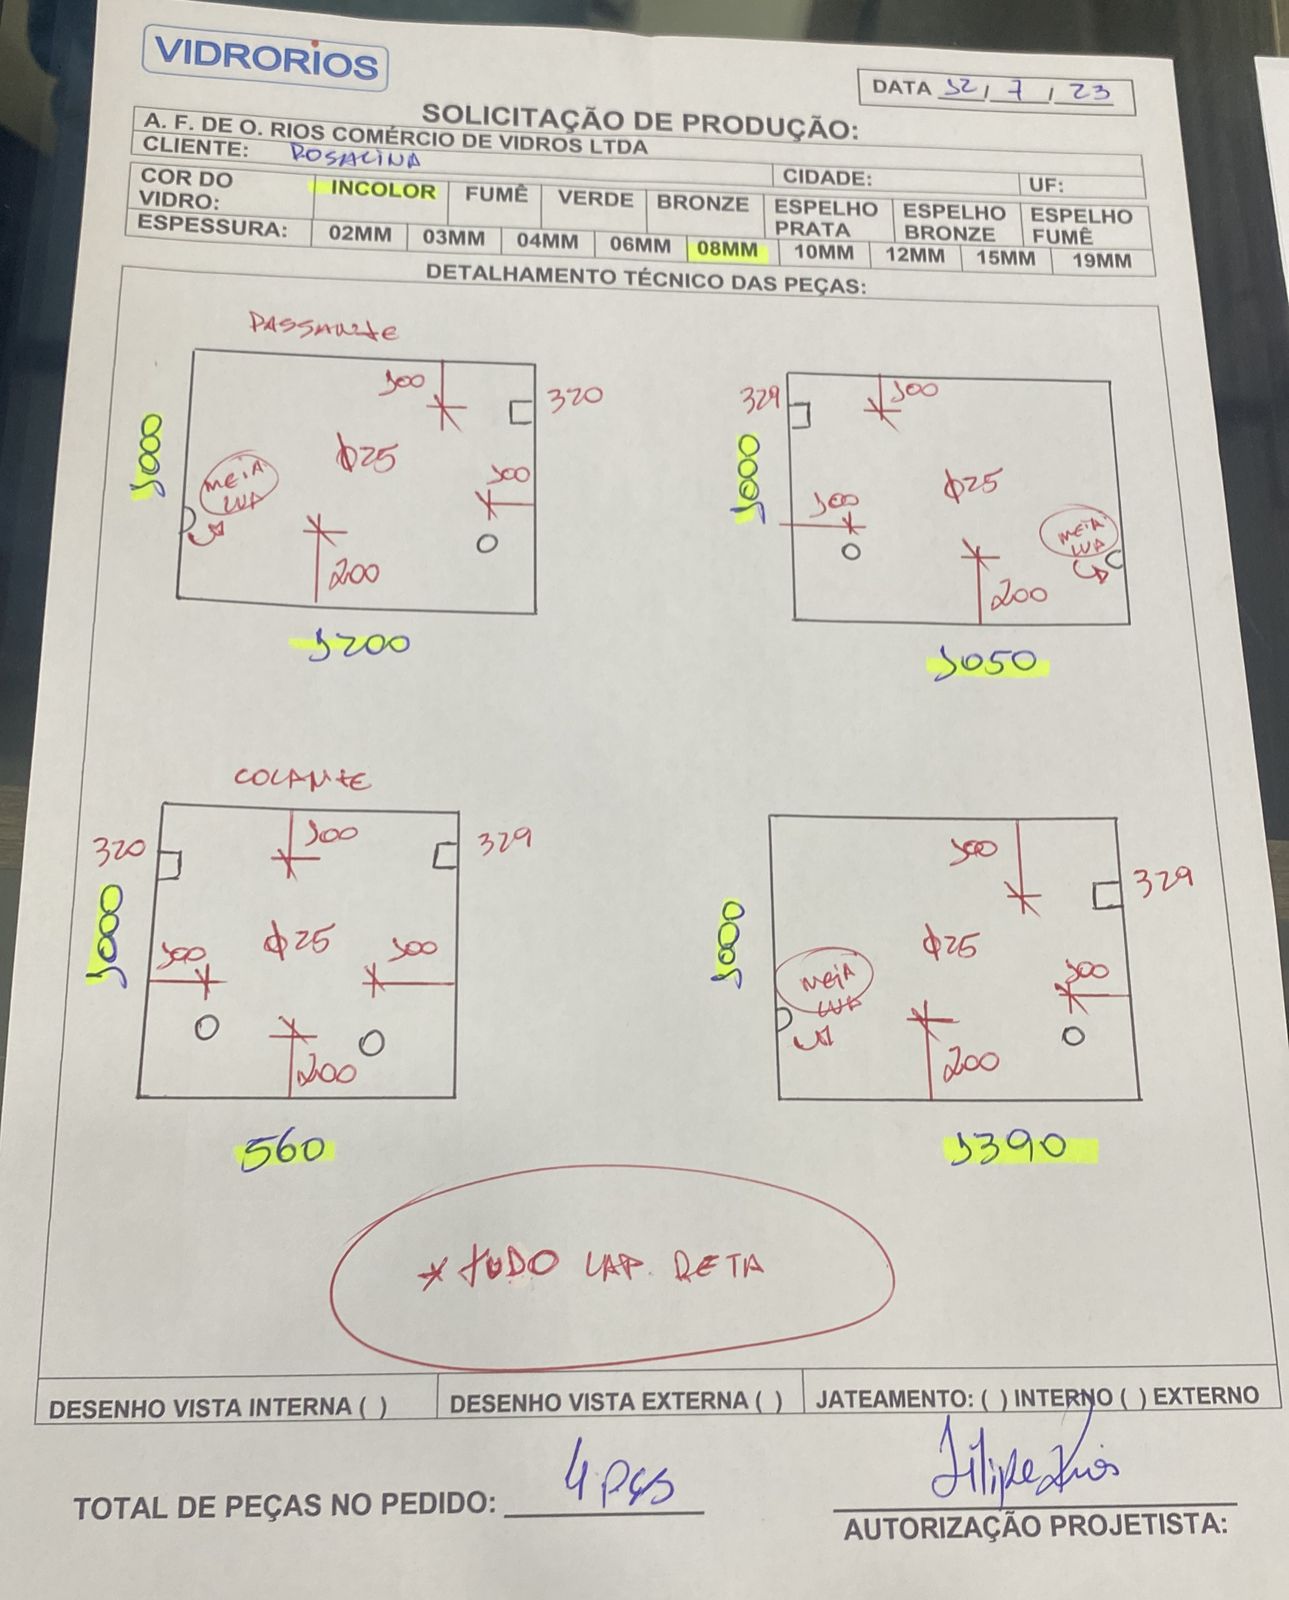 VIDRORIOS
DATA 12 / 7 / 23
SOLICITAÇÃO DE PRODUÇÃO:
A. F. DE O. RIOS COMÉRCIO DE VIDROS LTDA
CLIENTE: ROSALINA
CIDADE: UF:
COR DO VIDRO: INCOLOR FUMÊ VERDE BRONZE ESPELHO PRATA ESPELHO BRONZE ESPELHO FUMÊ
ESPESSURA: 02MM 03MM 04MM 06MM 08MM 10MM 12MM 15MM 19MM
DETALHAMENTO TÉCNICO DAS PEÇAS:
PASSANTE
100 320
1000
ϕ25
MEIA
LUA
100
200
1200
329 100
1000
ϕ25
100
MEIA
LUA
200
1050
COLANTE
320 100 329
1000
ϕ25
100 100
200
560
100
329
1000
ϕ25
MEIA
LUA
100
200
1390
* TUDO LAP. RETA
DESENHO VISTA INTERNA ( ) DESENHO VISTA EXTERNA ( ) JATEAMENTO: ( ) INTERNO ( ) EXTERNO
TOTAL DE PEÇAS NO PEDIDO: 4 pçs
Filipe Rios
AUTORIZAÇÃO PROJETISTA: